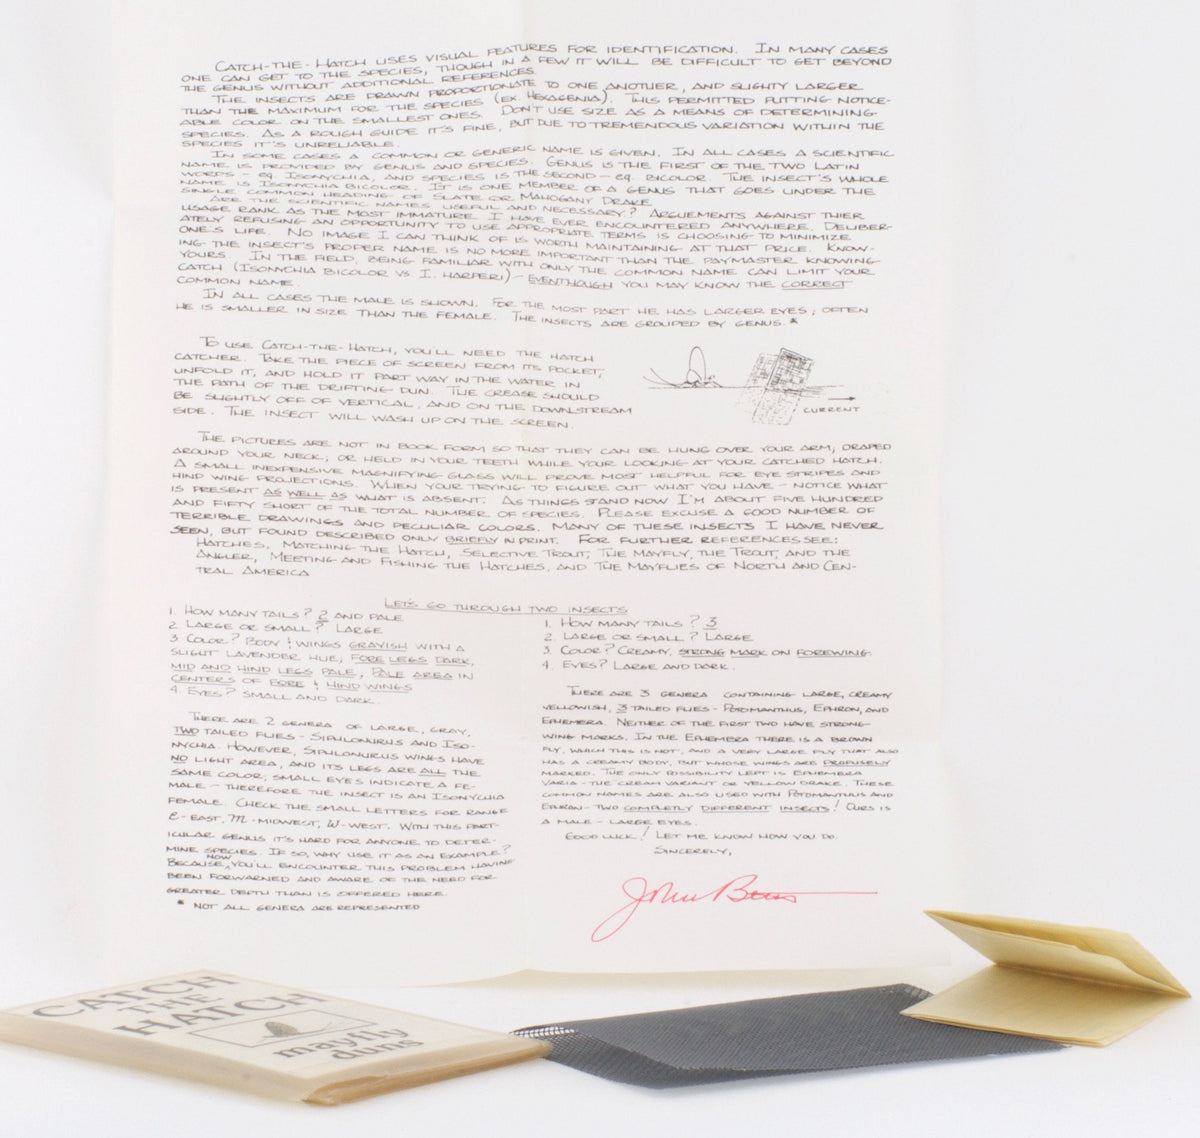 Catch-the-Hatch uses visual features for identification. In many cases
one can get to the species, though in a few it will be difficult to get beyond
the genus without additional references.
The insects are drawn proportionate to one another, and slighty larger
than the maximum for the species (ex. Hexagenia). This permitted putting notice-
able color on the smallest ones. Don't use size as a means of determining
species. As a rough guide it's fine, but due to tremendous variation within the
species it's unreliable.
In some cases a common or generic name is given. In all cases a scientific
name is provided by genus and species. Genus is the first of the two Latin
words - eg. Isonychia, and species is the second - eg. bicolor. The insect's whole
name is Isonychia bicolor. It is one member of a genus that goes under the
single common heading of Slate or Mahogany Drake.
Are the scientific names useful and necessary? Arguements against thier
usage rank as the most immature I have ever encountered anywhere. Deliber-
ately refusing an opportunity to use appropriate terms is choosing to minimize
one's life. No image I can think of is worth maintaining at that price. Know-
ing the insect's proper name is no more important than the paymaster knowing
yours. In the field, being familiar with only the common name can limit your
catch (Isonychia bicolor vs. I. harperi) - eventhough you may know the correct
common name.
In all cases the male is shown. For the most part he has larger eyes; often
he is smaller in size than the female. The insects are grouped by genus. *
To use Catch-the-Hatch, you'll need the hatch
catcher. Take the piece of screen from its pocket,
unfold it, and hold it part way in the water in
the path of the drifting dun. The crease should
be slightly off of vertical, and on the downstream
side. The insect will wash up on the screen.
current
The pictures are not in book form so that they can be hung over your arm; draped
around your neck; or held in your teeth while your looking at your catched hatch.
A small inexpensive magnifying glass will prove most helpful for eye stripes and
hind wing projections. When your trying to figure out what you have - notice what
is present as well as what is absent. As things stand now I'm about five hundred
and fifty short of the total number of species. Please excuse a good number of
terrible drawings and peculiar colors. Many of these insects I have never
seen, but found described only briefly in print. For further references see:
Hatches, Matching the Hatch, Selective Trout, The Mayfly, the Trout, and the
Angler, Meeting and Fishing the Hatches, and The Mayflies of North and Cen-
tral America
Let's go through two insects
1. How many tails? 2 and pale
2. Large or small? Large
3. Color? Body & wings grayish with a
slight lavender hue, fore legs dark,
mid and hind legs pale, pale area in
centers of fore & hind wings
4. Eyes? Small and dark.
There are 2 genera of large, gray,
two tailed flies - Siphlonurus and Iso-
nychia. However, Siphlonurus wings have
no light area, and its legs are all the
same color; small eyes indicate a fe-
male - therefore the insect is an Isonychia
female. Check the small letters for range
e - east, m - midwest, w - west. With this part-
icular genus it's hard for anyone to deter-
mine species. If so, why use it as an example?
Because, now you'll encounter this problem having
been forwarned and aware of the need for
greater depth than is offered here.
* Not all genera are represented
1. How many tails? 3
2. Large or small? Large
3. Color? Creamy, strong mark on forewing.
4. Eyes? Large and dark.
There are 3 genera containing large, creamy
yellowish, 3 tailed flies - Potomanthus, Ephron, and
Ephemera. Neither of the first two have strong
wing marks. In the Ephemera there is a brown
fly, which this is not, and a very large fly that also
has a creamy body, but whose wings are profusely
marked. The only possibility left is Ephemera
varia - the cream variant or yellow drake. These
common names are also used with Potomanthus and
Ephron - two completly different insects! Ours is
a male - large eyes.
Good luck! Let me know how you do.
Sincerely,
John
CATCH
THE
HATCH
mayfly
duns